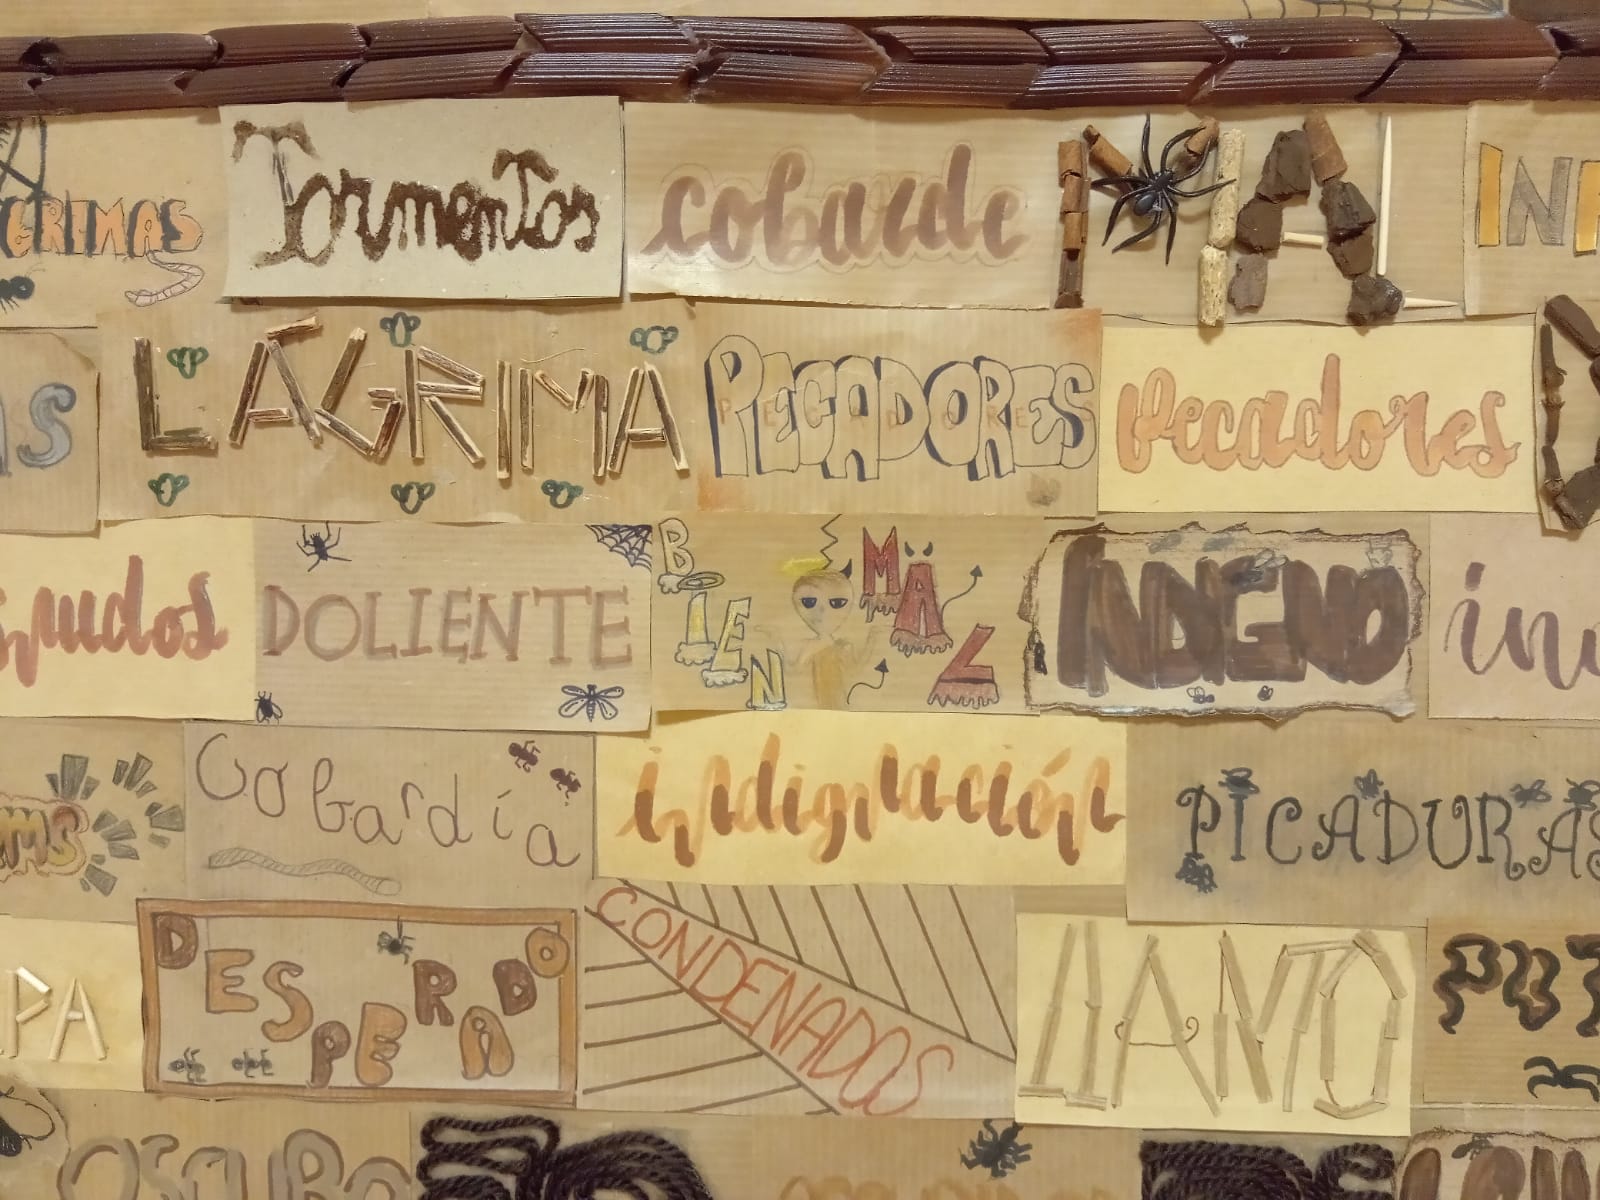 Tormentos cobarde MAL
LÁGRIMA PECADORES pecadores
DOLIENTE BIEN MAL INDIGNO
Cobardía indignación PICADURAS
DESPERADO CONDENADOS LLANTO
OSCURO